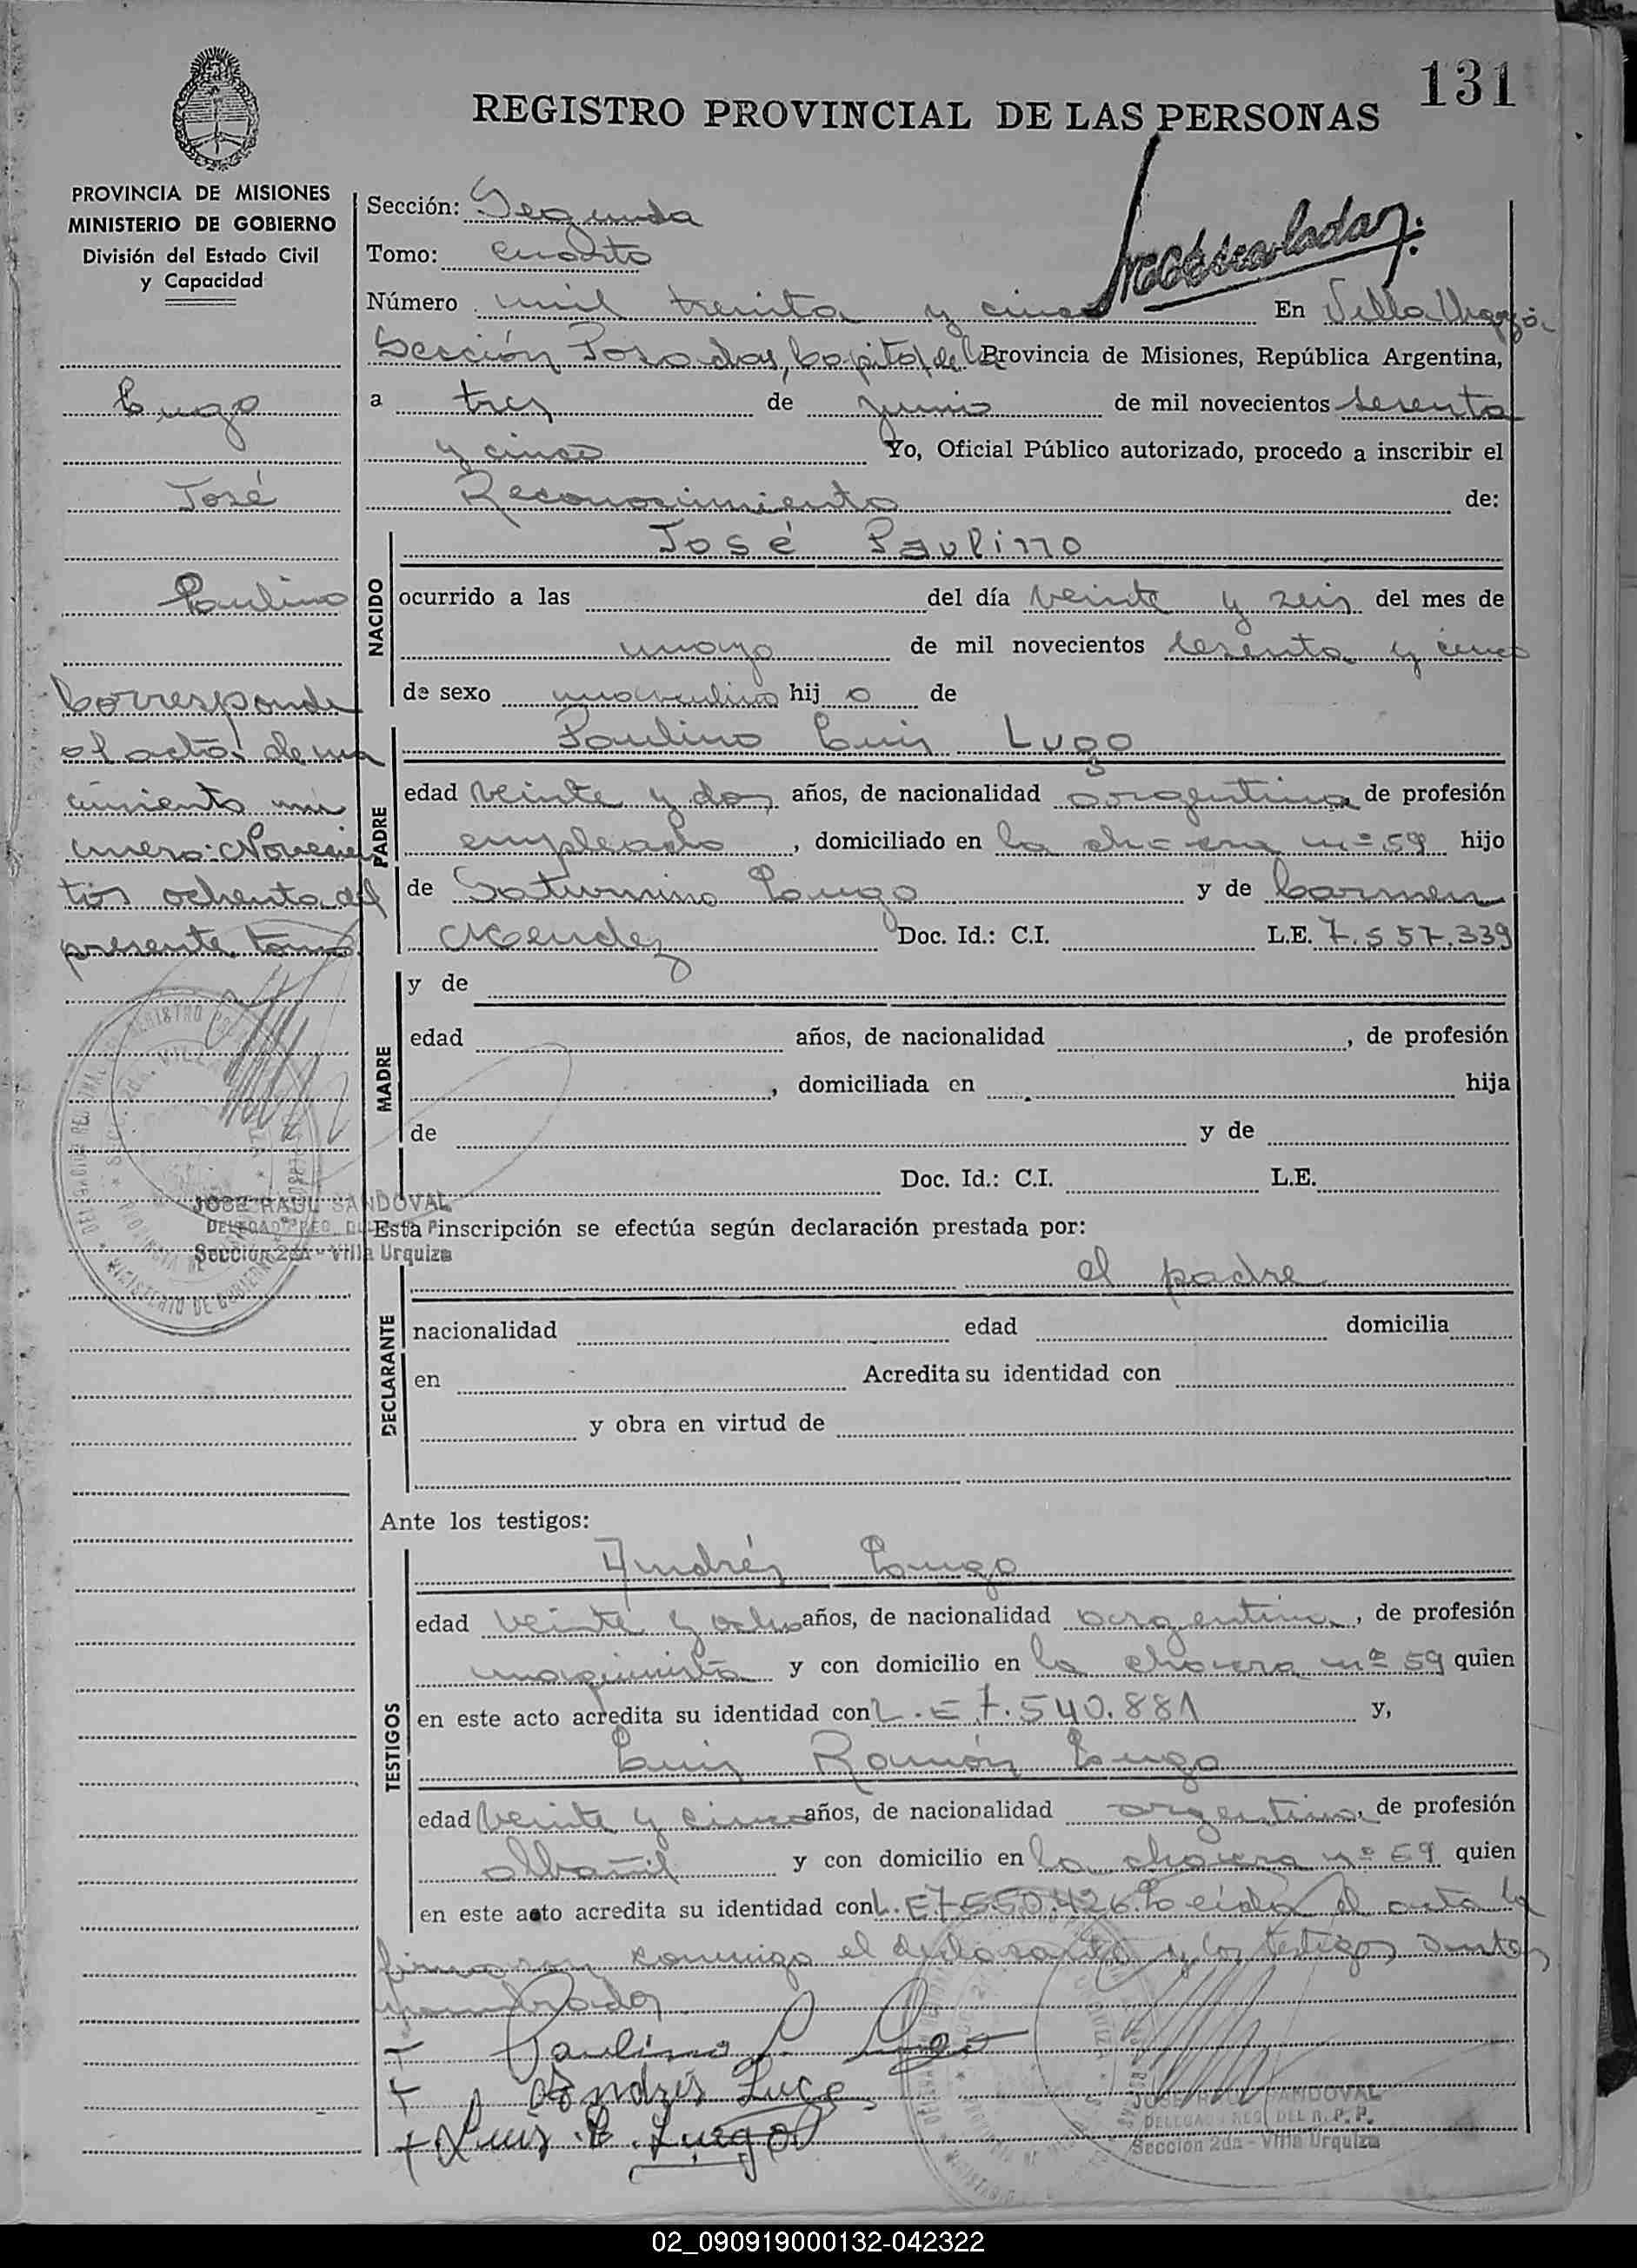 131
REGISTRO PROVINCIAL DE LAS PERSONAS
PROVINCIA DE MISIONES
MINISTERIO DE GOBIERNO
División del Estado Civil
y Capacidad
Lugo
José
Paulino
Corresponde
al acta de na
cimiento nú
mero: Novecien
tos ochenta del
presente tomo
JOSE RAUL SANDOVAL
Sección 2da - Villa Urquiza
Sección: Segunda
Tomo: cuarto
Número mil treinta y cinco En Villa Urquiza
Sección Posadas, Capital de la Provincia de Misiones, República Argentina,
a tres de junio de mil novecientos sesenta
y cinco Yo, Oficial Público autorizado, procedo a inscribir el
Reconocimiento de:
José Paulino
NACIDO
ocurrido a las del día veinte y seis del mes de
mayo de mil novecientos sesenta y cinco
de sexo masculino hij o de
Paulino Luis Lugo
PADRE
edad veinte y dos años, de nacionalidad argentina, de profesión
empleado, domiciliado en la chacra nº 59 hijo
de Saturnino Lugo y de Carmen
Mendez Doc. Id.: C.I. L.E. 7.557.339
MADRE
y de
edad años, de nacionalidad , de profesión
, domiciliada en hija
de y de
Doc. Id.: C.I. L.E.
Esta inscripción se efectúa según declaración prestada por:
el padre
DECLARANTE
nacionalidad edad domicilia
en Acredita su identidad con
y obra en virtud de
Ante los testigos:
Andrés Lugo
TESTIGOS
edad veinte y ocho años, de nacionalidad argentina, de profesión
maquinista y con domicilio en la chacra nº 59 quien
en este acto acredita su identidad con L.E 7.540.881 y,
Luis Ramón Lugo
edad veinte y cinco años, de nacionalidad argentina, de profesión
albañil y con domicilio en la chacra nº 59 quien
en este acto acredita su identidad con L.E 7550.426. Leída el acta la
firmaron conmigo el declarante y los testigos antes
nombrados
Paulino L. Lugo
Andrés Lugo
Luis R. Lugo
JOSE RAUL SANDOVAL
DELEGADO REG. DEL R.P.P.
Sección 2da - Villa Urquiza
02_090919000132-042322